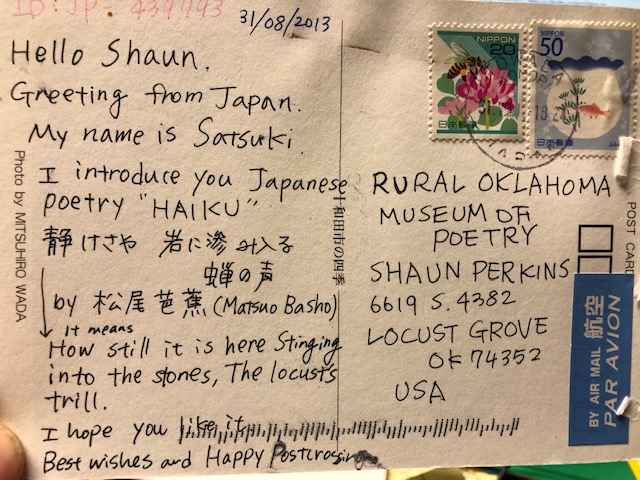 ID: JP-439793
31/08/2013
Hello Shaun.
Greeting from Japan.
My name is Satsuki.
I introduce you Japanese
poetry "HAIKU"
静けさや 岩に滲み入る
蝉の声
by 松尾芭蕉 (Matsuo Basho)
It means
How still it is here Stinging
into the stones, The locusts
trill.
I hope you like it
Best wishes and Happy Postcrossing
Photo by MITSUHIRO WADA
十和田市の四季
NIPPON
20
日本郵便
NIPPON
50
日本郵便
RURAL OKLAHOMA
MUSEUM OF
POETRY
SHAUN PERKINS
6619 S. 4382
LOCUST GROVE
OK 74352
USA
POST CARD
BY AIR MAIL 航空
PAR AVION